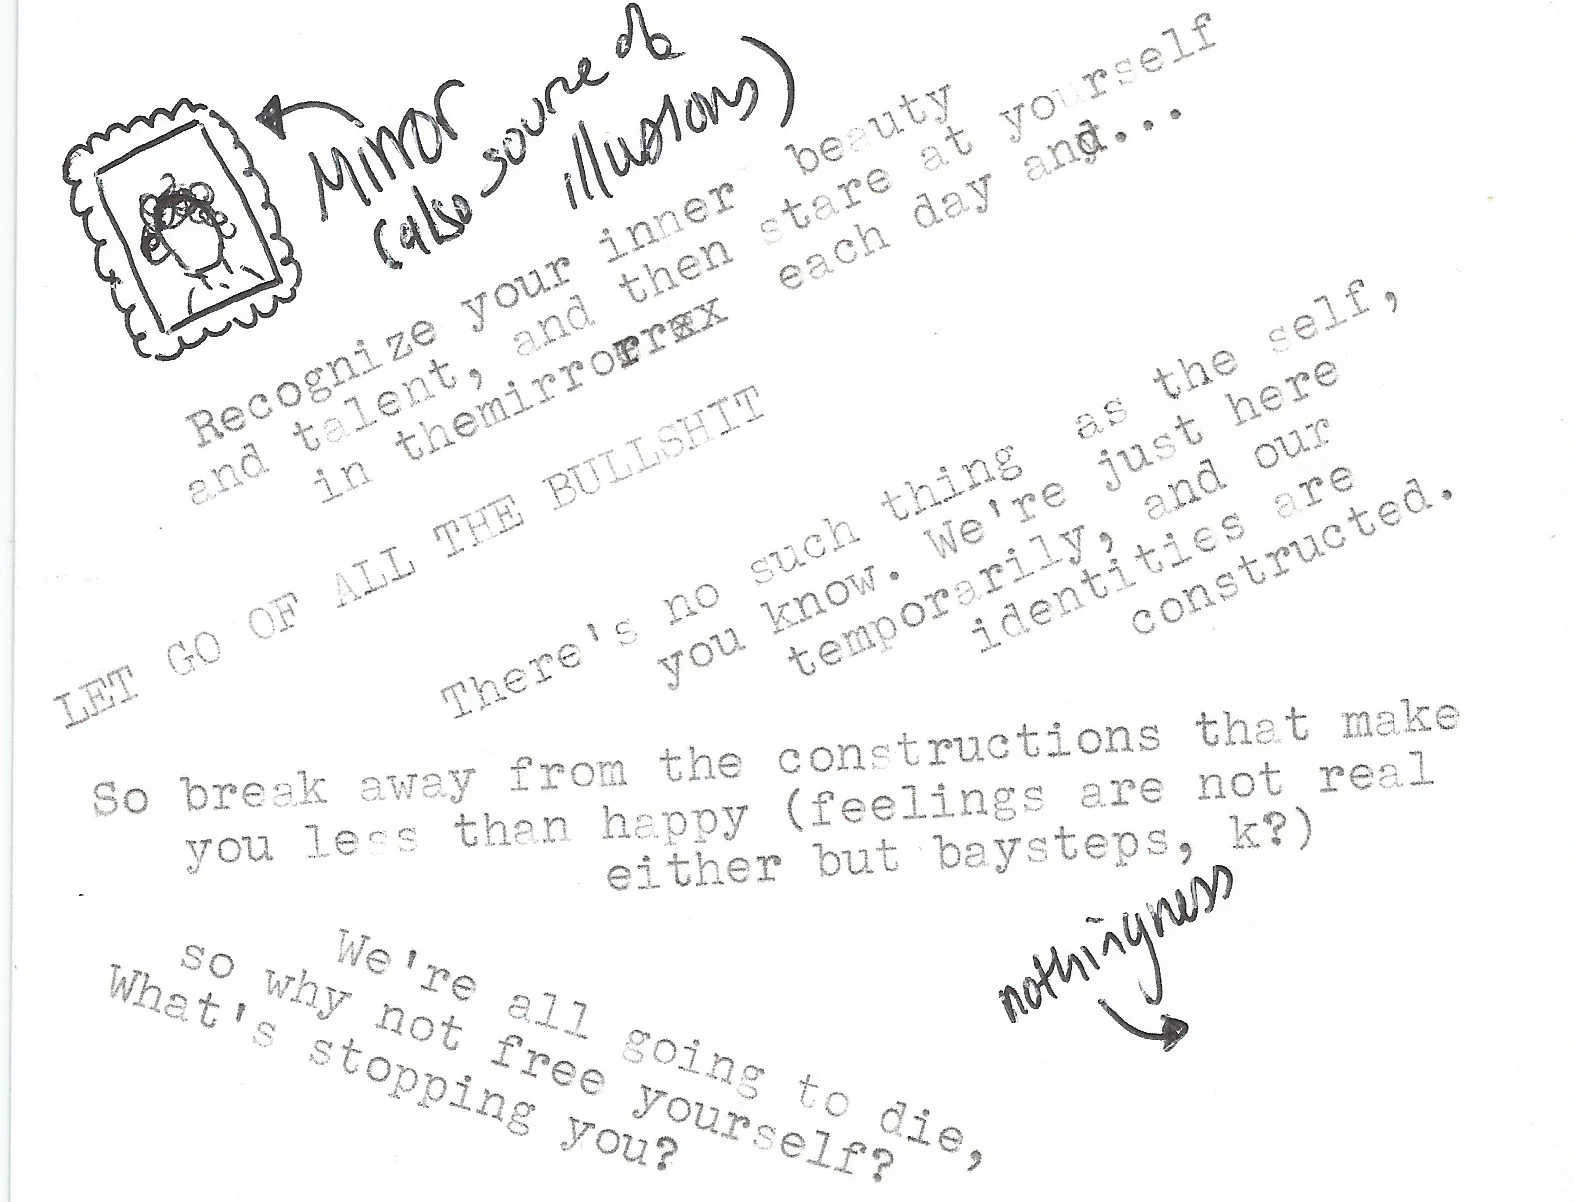 Mirror
(also source of
illusions)
Recognize your inner beauty
and talent, and then stare at yourself
in themirrorrrxx each day and...
LET GO OF ALL THE BULLSHIT
There's no such thing as the self,
you know. We're just here
temporarily, and our
identities are
constructed.
So break away from the constructions that make
you less than happy (feelings are not real
either but baysteps, k?)
nothingness
We're all going to die,
so why not free yourself?
What's stopping you?